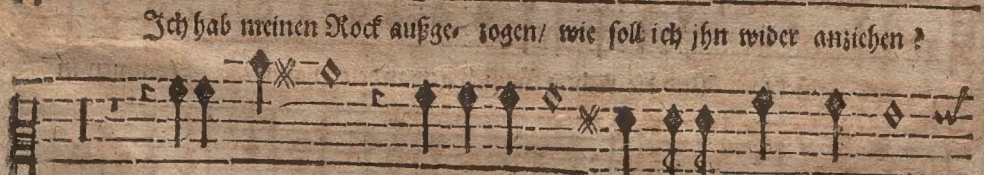 Ich hab meinen Rock außge- zogen/ wie soll ich jhn wider anziehen?